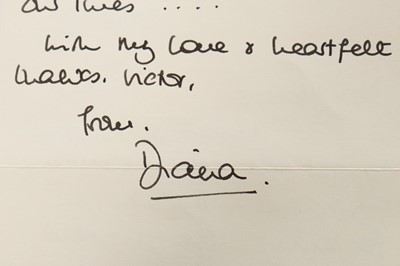 all times ....
with my love & heartfelt
thanks. Victor,
from.
Diana.